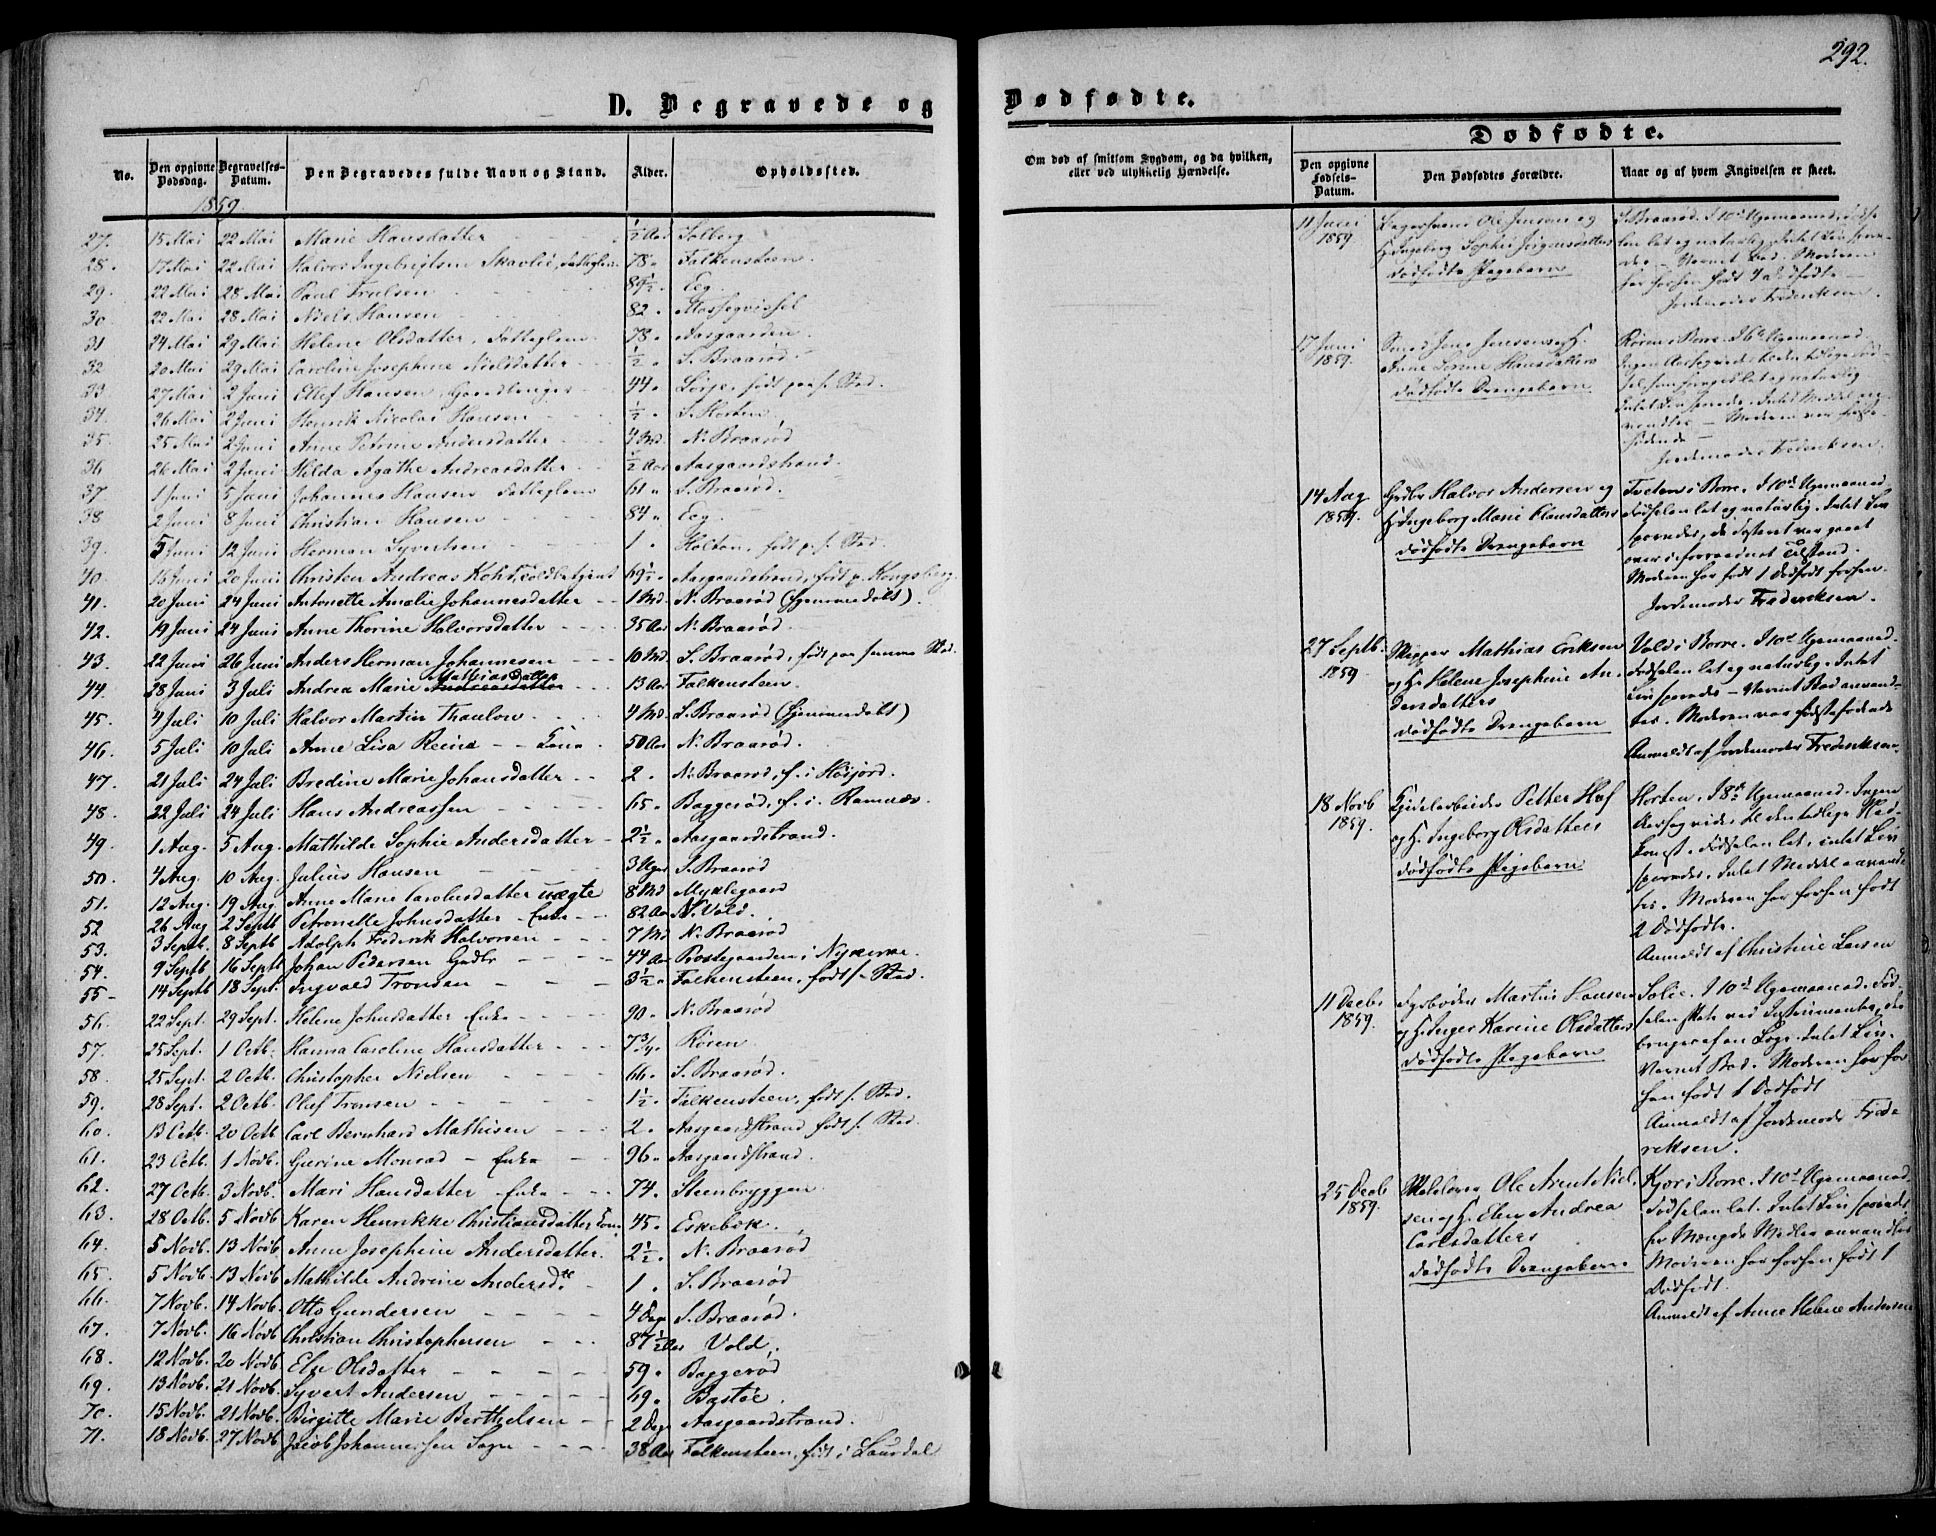 292.
D. Begravede og Dødfødte.
No.
Den opgivne Dødsdag.
Begravelses-Datum.
Den Begravedes fulde Navn og Stand.
Alder.
Opholdssted.
1859.
27. 15 Mai 22 Mai Marie Hansdatter ½ Aar Solberg
28. 17 Mai 22 Mai Halvor Ingebrigtsen Skavlie, Fatteglem 78 Falkensteen.
29. 22 Mai 28 Mai Paul Trulsen 89½ Eeg.
30. 22 Mai 28 Mai Niels Hansen 82
31 24 Mai 29 Mai Helene Olsdatter, Fatteglem 78 Aasgaarden.
32 20 Mai 29 Mai Caroline Josephine Nielsdatter ½ S. Braarød.
33 27 Mai 2 Juni Ellef Hansen 44 født paa s. Sted.
34. 26 Mai 2 Juni Henrik Nicolai Hansen ½ S. Horten
35. 25 Mai 2 Juni Anne Petrine Andersdatter 4 Md. N. Braarød
36 26 Mai 2 Juni Hilda Agathe Andreasdatter ½ Aar Aasgaardstrand.
37. 1 Juni 5 Juni Johannes Hansen Fatteglem 61 S. Braarød.
38 2 Juni 8 Juni Christian Hansen 84 Eeg.
39. 5 Juni 12 Juni Herman Syvertsen 1 Holtan, født p. s. Sted.
40. 16 Juni 20 Juni Christen Andreas Koht, Toldbetjent 69½ Aasgaardstrand, født p. Kongsberg.
41. 20 Juni 24 Juni Antonette Amalie Johannesdatter 1 Md. N. Braarød (Hjemmedøbt).
42. 19 Juni 24 Juni Anne Thorine Halvorsdatter 35 Aar N. Braarød.
43. 22 Juni 26 Juni Anders Herman Johannesen 10 Md. S. Braarød, født paa samme Sted.
44. 28 Juni 3 Juli Andrea Marie Mathiasdatter Andreasdatter 13 Aar Falkensteen.
45. 4 Juli 10 Juli Halvor Martin Thaulow 4 Md. S. Braarød (Hjemmedøbt)
46. 5 Juli 10 Juli Anne Lisa Reine Kone 50 Aar N. Braarød.
47. 21 Juli 24 Juli Bredine Marie Johansdatter 2 N. Braarød, f. i Høijord.
48. 22 Juli 24 Juli Hans Andreassen 65 Baggerød, f. i Ramnæs.
49. 1 Aug. 5 Aug. Mathilde Sophie Andersdatter 2½ Aasgaardstrand.
50. 4 Aug. 10 Aug. Julius Hansen 3 Uger S. Braarød
51. 12 Aug. 19 Aug. Anne Marie Carolusdatter uægte 8 Md Myklegaard
52 26 Aug 2 Septb Petronelle Johnsdatter Enke 82 Aar N. Vold.
53. 3 Septb. 8 Septb Adolph Frederik Halvorsen 7 Md N. Braarød
54. 9 Septb 16 Septb Johan Pedersen Grdbr 44 Aar Præstegaarden i Nykirke.
55 14 Septb 18 Sept. Ingvald Tronsen 3½ Falkensteen, født s. Sted.
56. 22 Sept. 29 Sept. Helene Johnsdatter Enke 90 N. Braarød
57. 25 Sept. 1 Octb. Hanna Caroline Hansdatter 7¾ Røren.
58. 25 Sept. 2 Octb. Christopher Nielsen 66 S. Braarød.
59. 28 Sept. 2 Octb. Oluf Tronsen 1½ Falkensteen, født s. Sted.
60. 13 Octb. 20 Octb Carl Bernhard Mathisen 2 Aasgaardstrand født s. Sted.
61. 23 Octb. 1 Novb. Gurine Monrad Enke 96 Aasgaardstrand.
62. 27 Octb. 3 Novb. Mari Hansdatter Enke 74. Steenbryggen.
63. 28 Octb. 5 Novb Karen Henrikke Christiansdatter Kone 45 Eskebæk.
64. 5 Novb. 13 Novb. Anne Josephine Andersdatter. 2½ N. Braarød
65. 5 Novb. 13 Novb Mathilde Andrine Andersd.tr 1 S. Braarød
66. 7 Novb. 14 Novb. Otto Gundersen 4 Dage S. Braarød.
67. 7 Novb. 16 Novb Christian Christophersen 87½ Aar Vold.
68. 12 Novb. 20 Novb Else Olsdatter 59 Baggerød
69. 13 Novb. 21 Novb. Syvert Andersen 69 Bastøe.
70. 15 Novb. 21 Novb. Birgitte Marie Berthelsen 2 Dage Aasgaardstrand.
71. 18 Novb. 27 Novb Jacob Johannessen 38 Aar Falkensteen, født i Laurdal
Om død af smitsom Sygdom, og da hvilken,
eller ved ulykkelig Hændelse.
Dødfødte.
Den opgivne Fødsels-Datum.
Den Dødfødtes Forældre.
Naar og af hvem Angivelsen er skeet.
11 Juni
1859
Ole Jensen og
H. Ingeborg Sophie Jørgensdatters
dødfødte Pigebarn
S. Braarød. I 10de Ugemaaned, Fødse-
len let og naturlig. Intet Liv spore-
des – Varmt Bad. Moderen
har forhen født
Jordemoder Frederiksen.
17 Juni
1859.
Smed Jens Jensens og H.
Anne Lovise Hansdatters
dødfødte Drengebarn
Røren i Borre. I 6te Ugemaaned.
Ingen Aarsag vides til den tidlige Fød-
sel som foregik let og naturlig
Intet Liv sporedes. Intet Middel an-
vendtes – Moderen var første-
fødende –
Jordemoder Frederiksen.
14 Aug
1859.
Grdbr Halvor Andersen og
H. Ingeborg Marie Olausdatters
dødfødte Drengebarn
Tveten i Borre. I 10de Ugemaaned.
Fødselen let og naturlig. Intet Liv
sporedes, da Fosteret var gaaet
over i forraadnet Tilstand.
Moderen har født 1 Dødfødt forhen.
Jordemoder Frederiksen.
27 Septb.
1859
Skipper Mathias Eriksen
og H. Helene Josephine An-
dersdatters
dødfødte Drengebarn
Vold i Borre. I 10de Ugemaaned.
Fødselen let og naturlig. Intet
Liv sporedes – Varmt Bad anvend-
tes. Moderen var førstefødende
Anmeldt af Jordemoder Frederiksen.
18 Novb
1859.
Petter Hof
og H. Ingeborg Olsdatters
dødfødte Pigebarn
Horten. I 8de Ugemaaned. Ingen
Aarsag vides til den tidlige Ned-
komst. Fødselen let, intet Liv
sporedes, Intet Middel anvend-
tes. Moderen har forhen født
2 Dødfødte.
Anmeldt af Christine Larsen
11 Decbr
1859.
Martin Hansen
og H. Inger Karine Olsdatters
dødfødte Pigebarn
Solie. I 10de Ugemaaned. Fød-
selen skete ved Instrumenter,
brugt af en Læge. Intet Liv.
Varmt Bad. Moderen har for-
hen født 1 Dødfødt
Anmeldt af Jordemoder Frede-
riksen.
25 Decb
1859.
Ole Arnt Niel-
sen og H. Elen Andrea
Carlsdatters
dødfødte Drengebarn
Kjær i Borre. I 10de Ugemaaned.
Fødselen let. Intet Liv sporedes,
Mængde Midler anvendtes
Moderen har forhen født 1
Dødfødt.
Anmeldt af Anne Helene Andersen